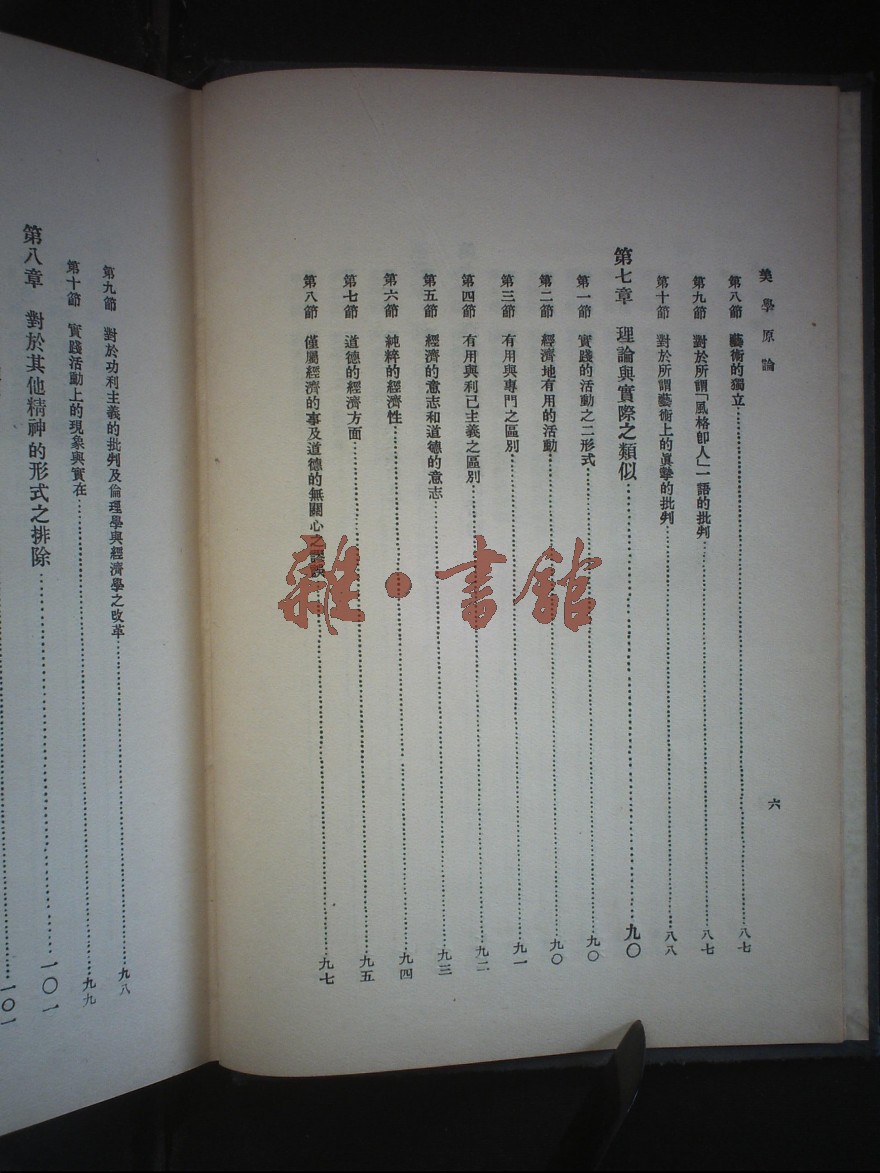 美學原論
六
第八節 藝術的獨立……八七
第九節 對於所謂「風格卽人」一語的批判……八七
第十節 對於所謂藝術上的眞摯的批判……八八
第七章 理論與實際之類似……九〇
第一節 實踐的活動之二形式……九〇
第二節 經濟地有用的活動……九〇
第三節 有用與專門之區別……九一
第四節 有用與利己主義之區別……九二
第五節 經濟的意志和道德的意志……九三
第六節 純粹的經濟性……九四
第七節 道德的經濟方面……九五
第八節 僅屬經濟的事及道德的無關心之……九七
第九節 對於功利主義的批判及倫理學與經濟學之改革……九八
第十節 實踐活動上的現象與實在……九九
第八章 對於其他精神的形式之排除……一〇一
一〇一
雜·書舘